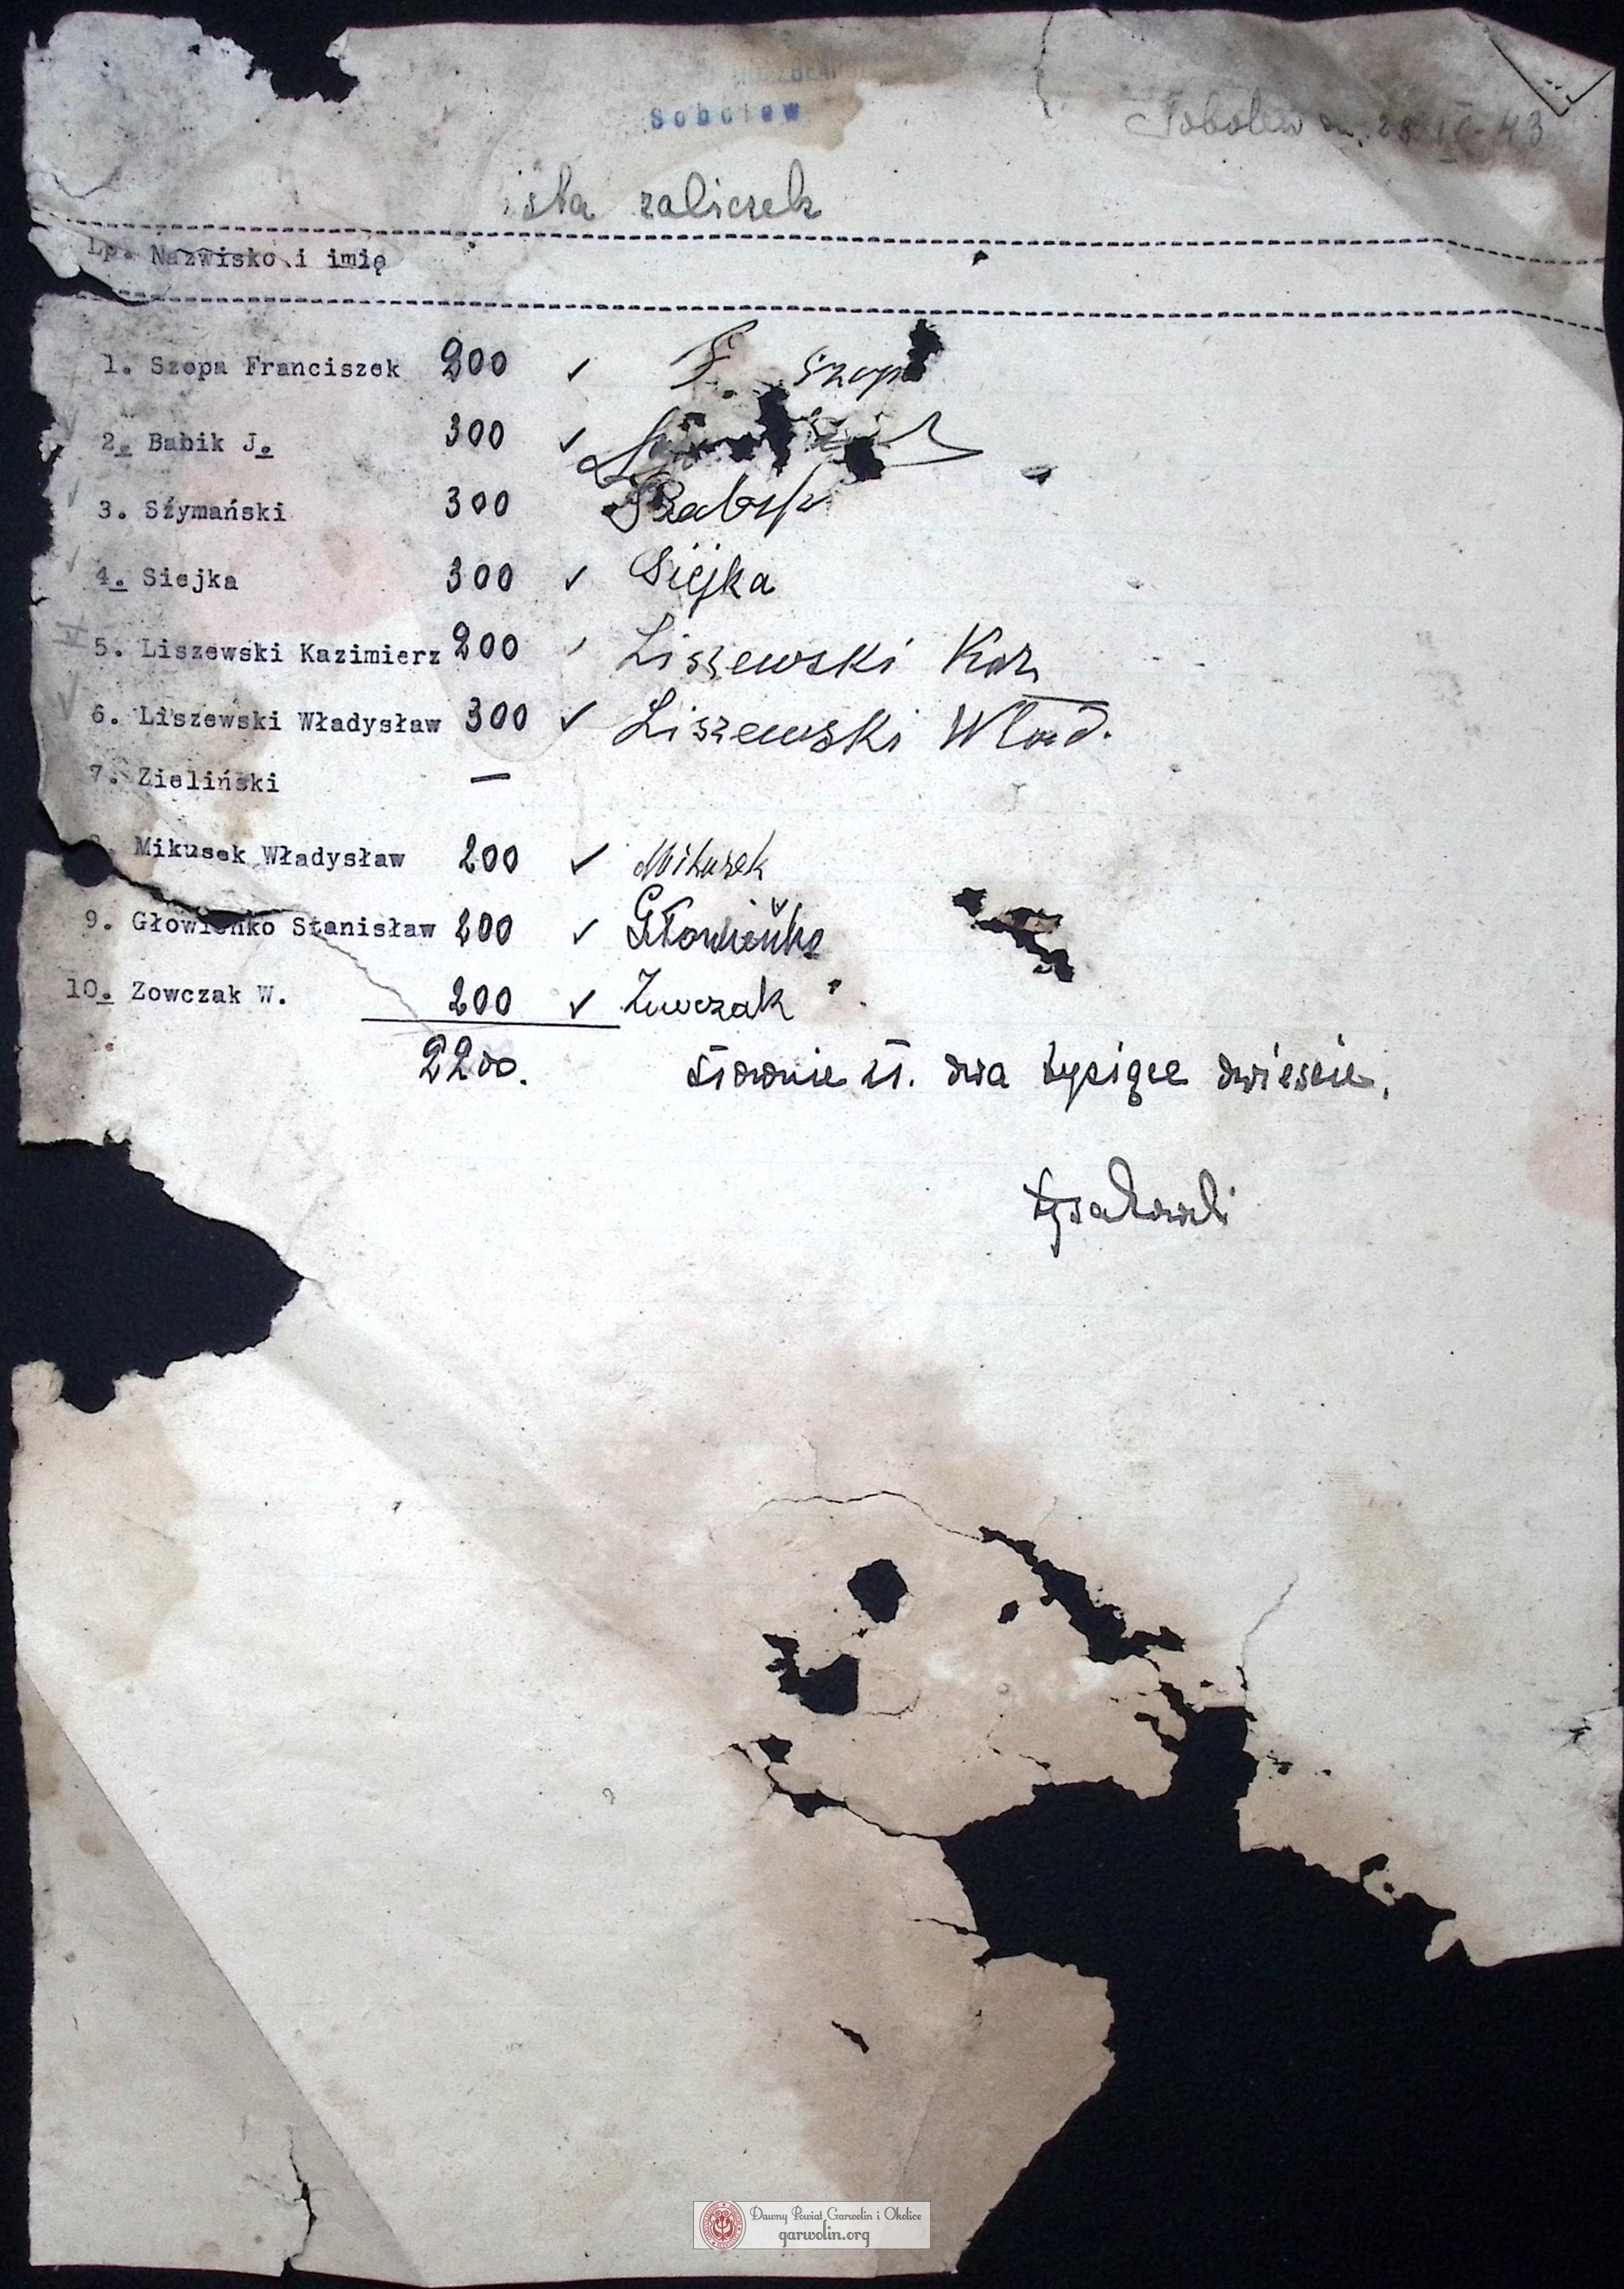 Sobolew
Sobolew dn. 28 IX 43
ista zaliczek
Lp. Nazwisko i imię
1. Szopa Franciszek 200 ✓ F. Szop
2. Babik J. 300 ✓
3. Szymański 300 Babik
4. Siejka 300 ✓ Siejka
5. Liszewski Kazimierz 200 ✓ Liszewski Kaz
6. Liszewski Władysław 300 ✓ Liszewski Wład.
7. Zieliński —
Mikusek Władysław 200 ✓ Mikusek
9. Głowienko Stanisław 200 ✓ Głowieńko
10. Zowczak W. 200 ✓ Zowczak
2200. Słownie zł. dwa tysiące dwieście.
Dawny Powiat Garwolin i Okolice
garwolin.org